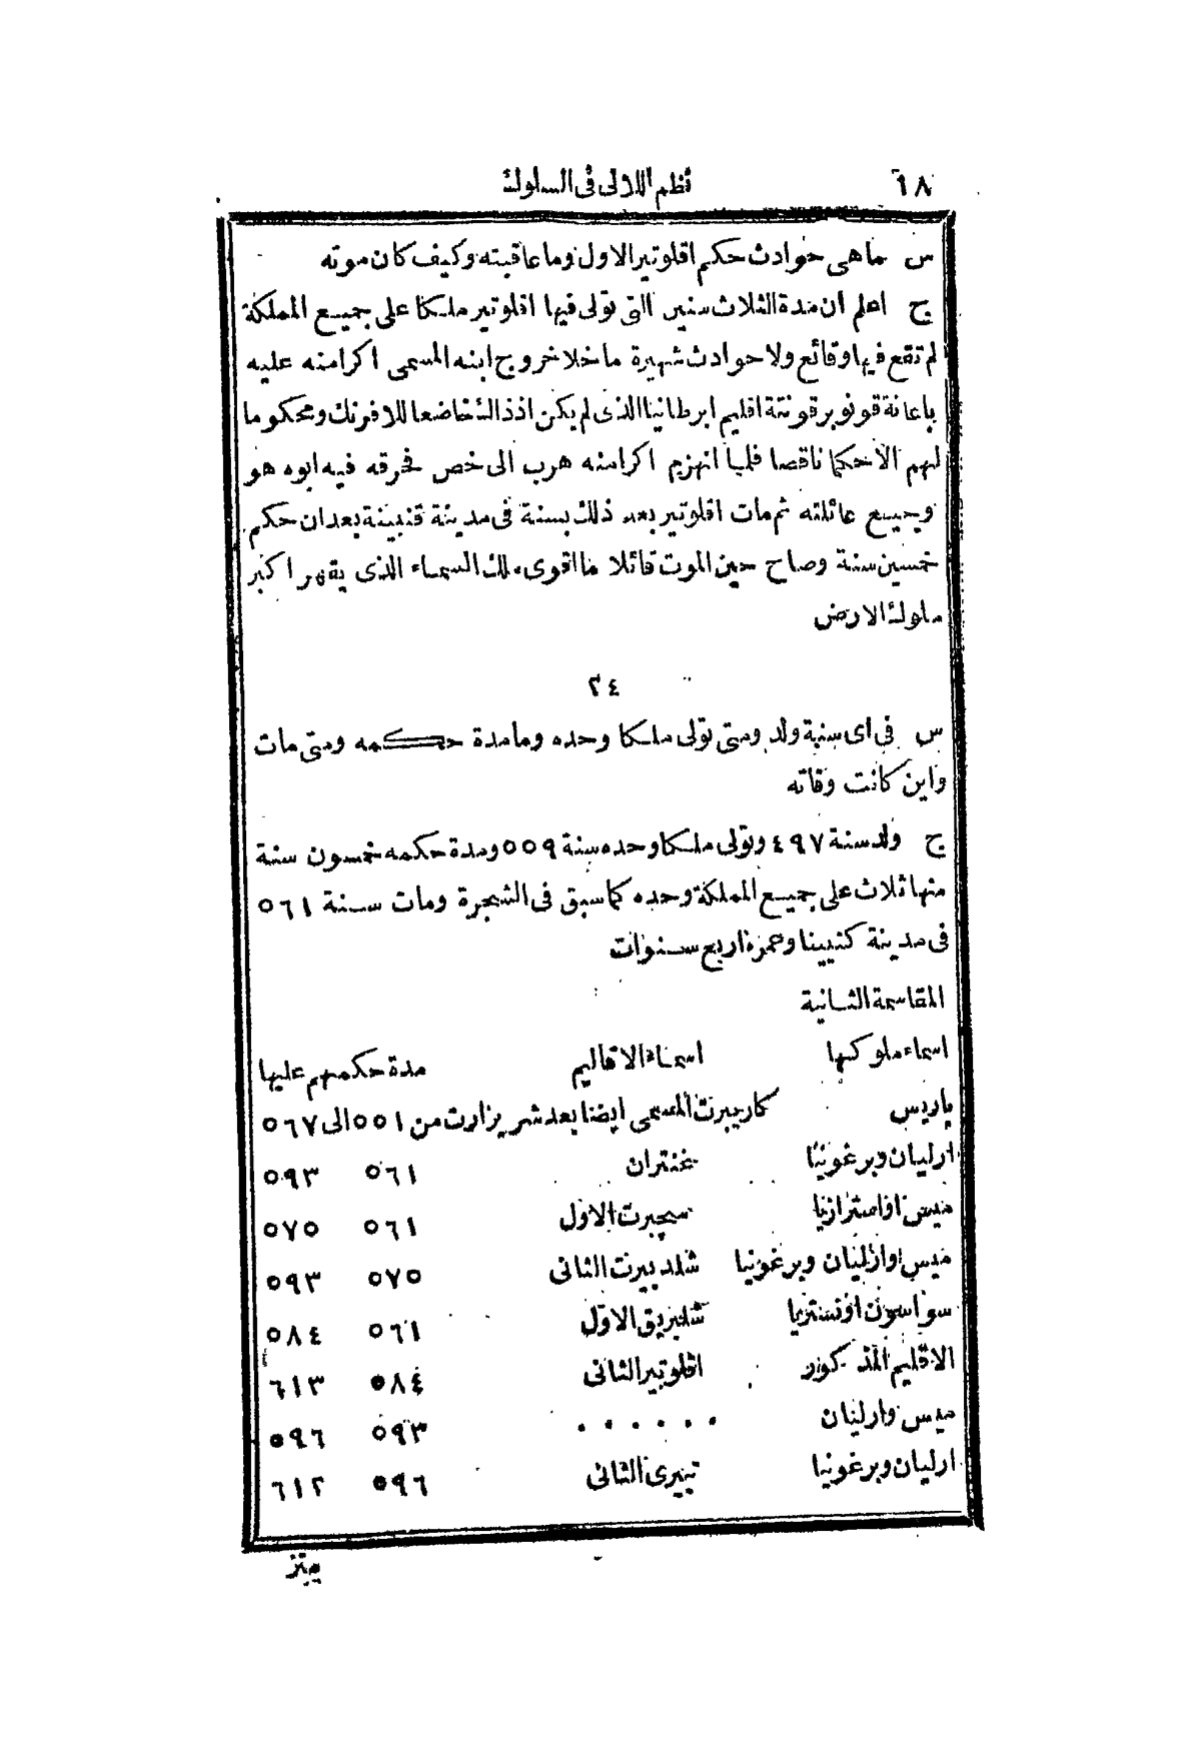 ٦٨ نظم اللالى فى السلوك
س ما هى حوادث حكم اقلوتير الاول وما عاقبته وكيف كان موته
ج اعلم ان مدة الثلاث سنين التى تولى فيها اقلوتير ملكا على جميع المملكة
لم تقع فيها وقائع ولا حوادث شهيرة ما خلا خروج ابنه المسمى اكرامنه عليه
باعانة قونوبر قونتة اقليم ابرطانيا الذى لم يكن اذ ذاك خاضعا للافرنك ومحكوما
لهم الا حكما ناقصا فلما انهزم اكرامنه هرب الى خص فحرقه فيه ابوه هو
وجميع عائلته ثم مات اقلوتير بعد ذلك بسنة فى مدينة قنبينة بعد ان حكم
خمسين سنة وصاح حين الموت قائلا ما اقوى ملك السماء الذى يقهر اكبر
ملوك الارض
٢٤
س فى اى سنة ولد ومتى تولى ملكا وحده وما مدة حكمه ومتى مات
واين كانت وفاته
ج ولد سنة ٤٩٧ وتولى ملكا وحده سنة ٥٥٩ ومدة حكمه خمسون سنة
منها ثلاث على جميع المملكة وحده كما سبق فى الشجرة ومات سنة ٥٦١
فى مدينة كنبينا وعمره اربع سنوات
المقاسمة الثانية
اسماء ملوكها اسماء الاقاليم مدة حكمهم عليها
باريس كاريبرت المسمى ايضا بعد شريزارت من ٥٥١ الى ٥٦٧
ارليان وبرغونيا غنتران ٥٦١ ٥٩٣
ميس او استرازيا سيجبرت الاول ٥٦١ ٥٧٥
ميس وارليان وبرغونيا شلدبيرت الثانى ٥٧٥ ٥٩٣
سواسون اونستريا شلبريق الاول ٥٦١ ٥٨٤
الاقليم المذكور اقلوتير الثانى ٥٨٤ ٦١٣
ميس وارليان ...... ٥٩٣ ٥٩٦
ارليان وبرغونيا تييرى الثانى ٥٩٦ ٦١٢